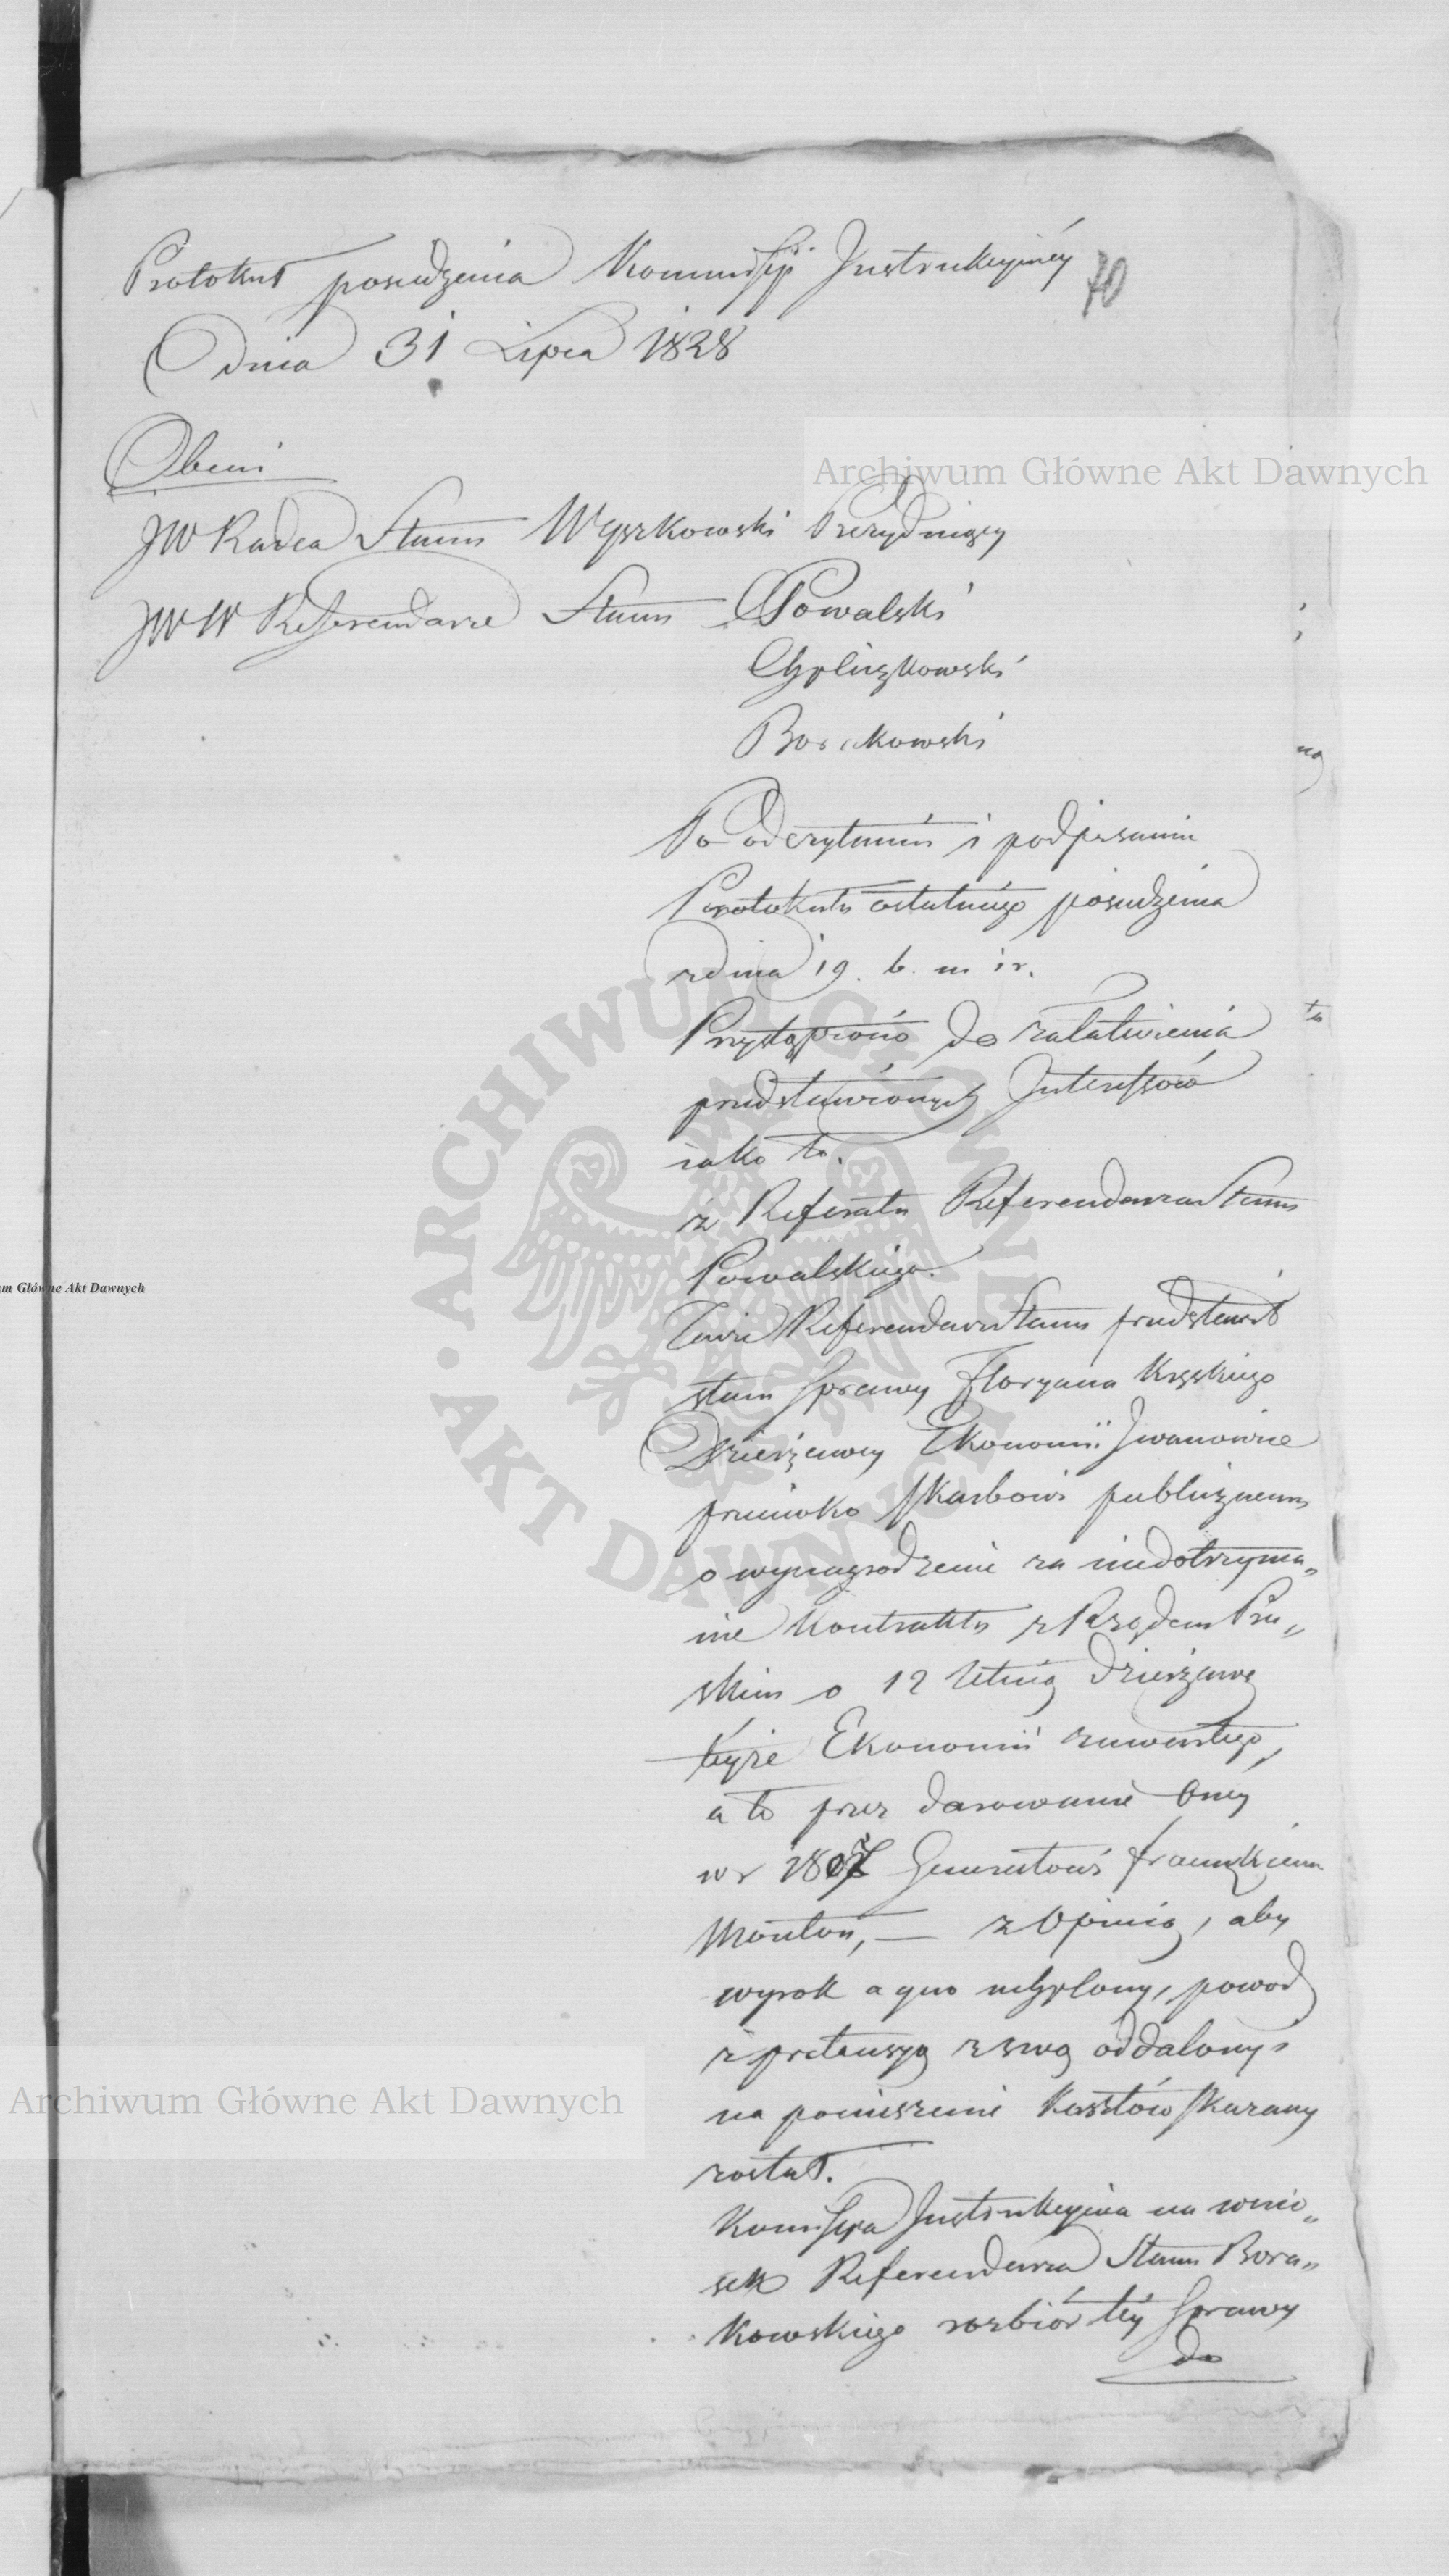 Protokuł posiedzenia Kommissyi Instrukcyinéy
70
dnia 31 Lipca 1828
Obecni
JW Radca Stanu Wyszkowski Prezyduiący
JWW Referendarze Stanu Powalski
Borakowski
Po odczytaniu i podpisaniu
Protokułu ostatniego posiedzenia
z dnia 19. b. m i r.
Przystąpiono do załatwienia
przedstawionych Interessów
iako to.
z Referatu Referendarza Stanu
Powalskiego.
Tenże Referendarz Stanu przedstawił
stan sprawy Floryana Kęskiego
Dzierżawcy Ekonomii Iwanowice
przeciwko skarbowi publicznemu
o wynagrodzenie za niedotrzyma„
nie Kontraktu z Rządem Pru„
skim o 12 letnią dzierżawę
teyże Ekonomii zawartego,
a to przez darowanie oney
w r 1807 Generałowi francuzkiemu
Mouton, — z Opinią, aby
wyrok a quo uchylony, powod
z pretensyą swą oddalony i
na poniesienie Kosztów skazany
został.
Komissya Instrukcyina na wnio„
sek Referendarza Stanu Bora„
kowskiego rozbiór téy sprawy
do
Archiwum Główne Akt Dawnych
Archiwum Główne Akt Dawnych
m Główne Akt Dawnych
ARCHIWUM GŁÓWNE AKT DAWNYCH